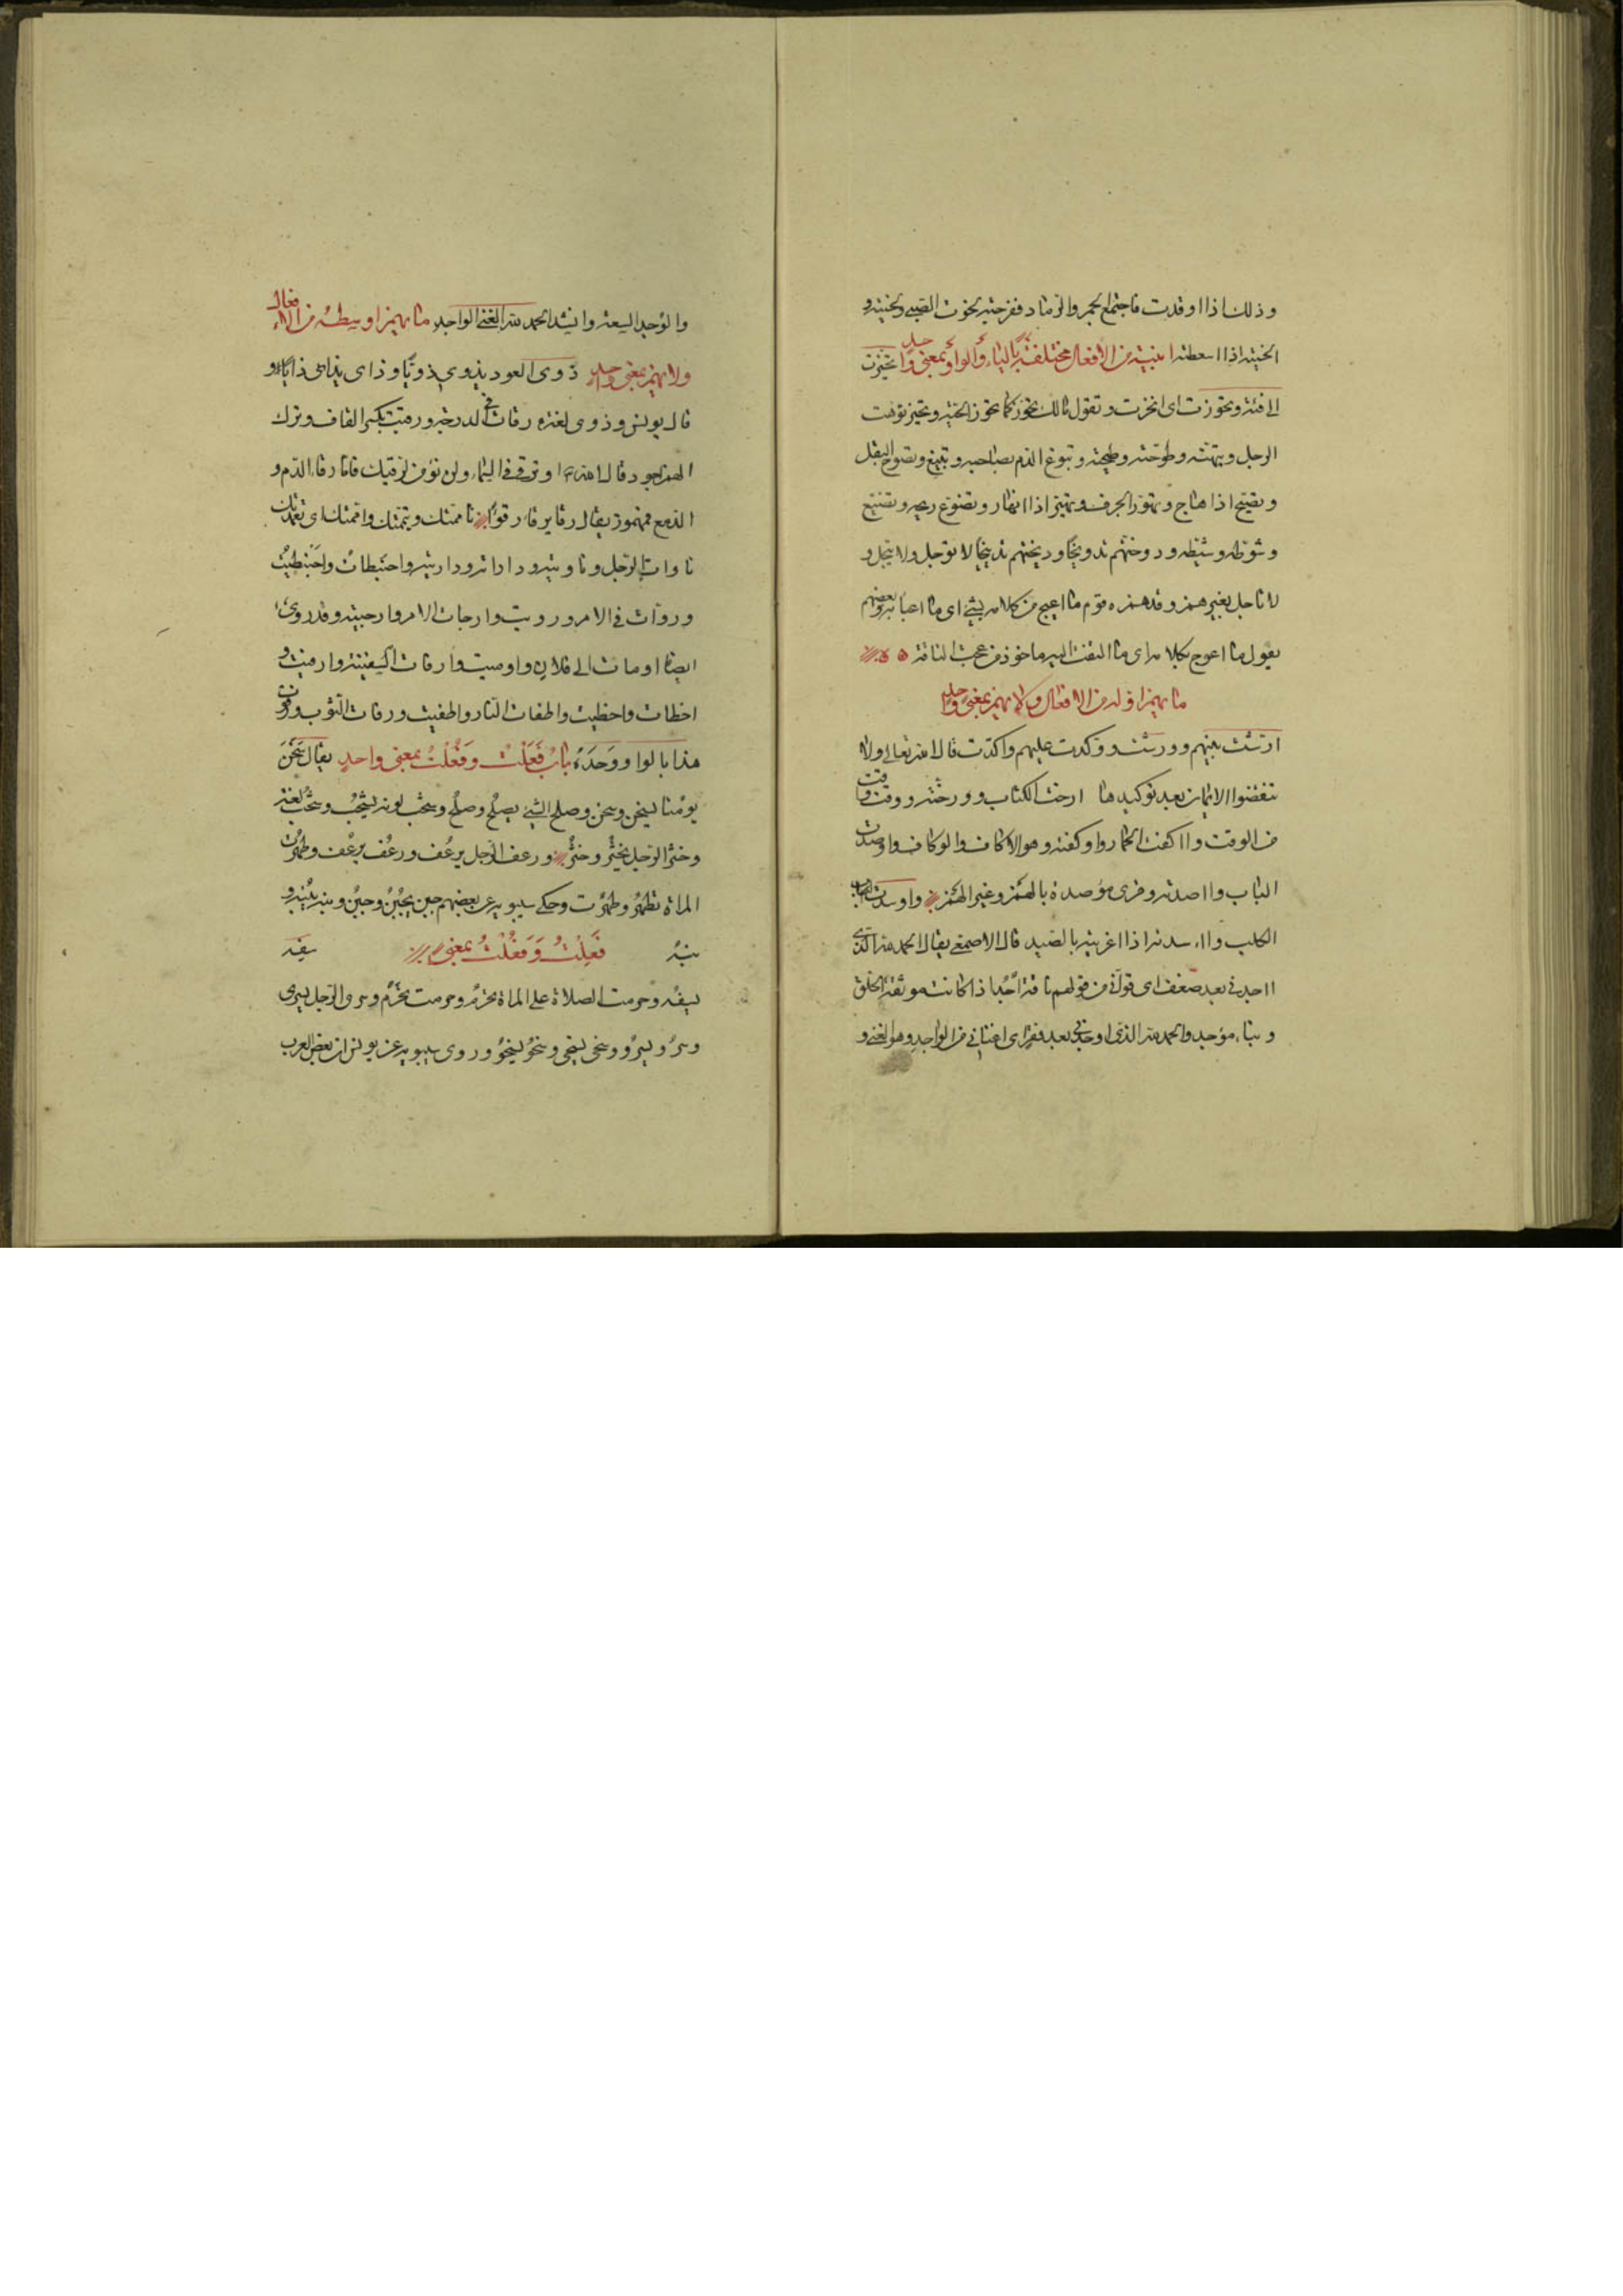 وذلك اذا اوقدت فاجتمع الجمر والرماد ففرجته لخوت الصبي ولخيته و
الخيته اذا اسعطته ابنية من الافعال مختلفة بالياء والواو بمعنى واحد تحيزت
الى فئة وتحوزت اى انحزت وتقول مالك تحوز كما تحوز الحية وتحيز توهت
الرجل وتيهته وطوحته وطيحته وتبوغ الدم بصاحبه وتبيغ وتصوح البقل
وتصيح اذا هاج وتهور الجرف وتهير اذا انهار وتضوع ريحه وتضيع
وشوطه وشيطه ودوختهم تدويخا وديختهم تدييخا لا توجل ولا تيجل و
لا تاجل بغير همز وقد همزه قوم ما اعيج من كلامه بشئ اى ما اعبأ به وبعضهم
يقول ما اعوج بكلامه اى ما التفت اليه ماخوذ من عجت الناقة
ما يهمز اوله من الافعال ولا يهمز بمعنى واحد
ارشت بينهم وورشت ووكدت عليهم واكدت قال الله تعالى ولا
تنقضوا الايمان بعد توكيدها ارخت الكتاب وورخته ووقت واقت
من الوقت وااكفت الحمار واوكفته وهو الاكاف والوكاف واوصدت
الباب وااصدته وقرى مؤصدة بالهمز وغير الهمز واوسدت الكلب
الكلب وااسدته اذا اغريته بالصيد قال الاصمعى يقال الحمد لله الذى
ااجدنى بعد ضعف اى قوانى من قولهم ناقة اجد اذا كانت موثقة الخلق
وبناء مؤجد والحمد لله الذى اوجدنى بعد فقر اى اغنانى من الواجد وهو الغنى و
والوجد السعة وانشد الحمد لله الغنى الواجد ما يهمز اوسطه من الافعال
ولا يهمز بمعنى واحد ذوى العود يذوي ذويا وذاى يذاى ذايا و
قال يونس وذوى لغة رقات فى الدرجة ورقيت بكسر القاف وترك
الهمز اجود قال الله او ترقى فى السماء ولن نؤمن لرقيك فاما رقا الدم و
الدمع فمهموز يقال رقا يرقا رقوا تاممتك وتيممتك واممتك اى تعمدتك
ناوات الرجل وناويته وداراته وداريته واحبنطات واحبنطيت
وروات فى الامر ورويت وارجات الامر وارجيته وقد روى
ايضا اومات الى فلان واوميت وارفات السفينة وارفيت و
اخطات واخطيت واطفات النار واطفيت ورفات الثوب ورفوت
هذا بالواو وحده باب فَعَلْتُ وفَعُلْتُ بمعنى واحد يقال سخن
يومنا يسخن وسخن وصلح الشئ يصلح وصلح وشحب لونه يشحب وشحب لغة
وخثر الرجل يخثر وخثر ورعف الرجل يرعف ورعف يرعف وطهرت
المراة تطهر وطهرت وحكى سيبويه عن بعضهم جبن يجبن وجبن ونبه ينبه و
نبه فَعِلْتُ وفَعُلْتُ بمعنى سفه
يسفه وحرمت الصلاة على المراة تحرم وحرمت تحرم وسرى الرجل يسرى
وسرو يسرو وسخى يسخى وسخو يسخو وروى سيبويه عن يونس ان بعض العرب